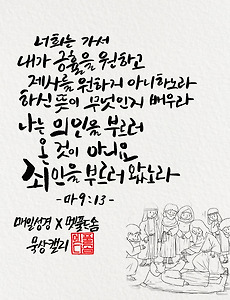 너희는 가서
내가 긍휼을 원하고
제사를 원하지 아니하노라
하신 뜻이 무엇인지 배우라
나는 의인을 부르러
온 것이 아니요
죄인을 부르러 왔노라
-마9:13-
매일성경 X 멋풀드솜
묵상캘리